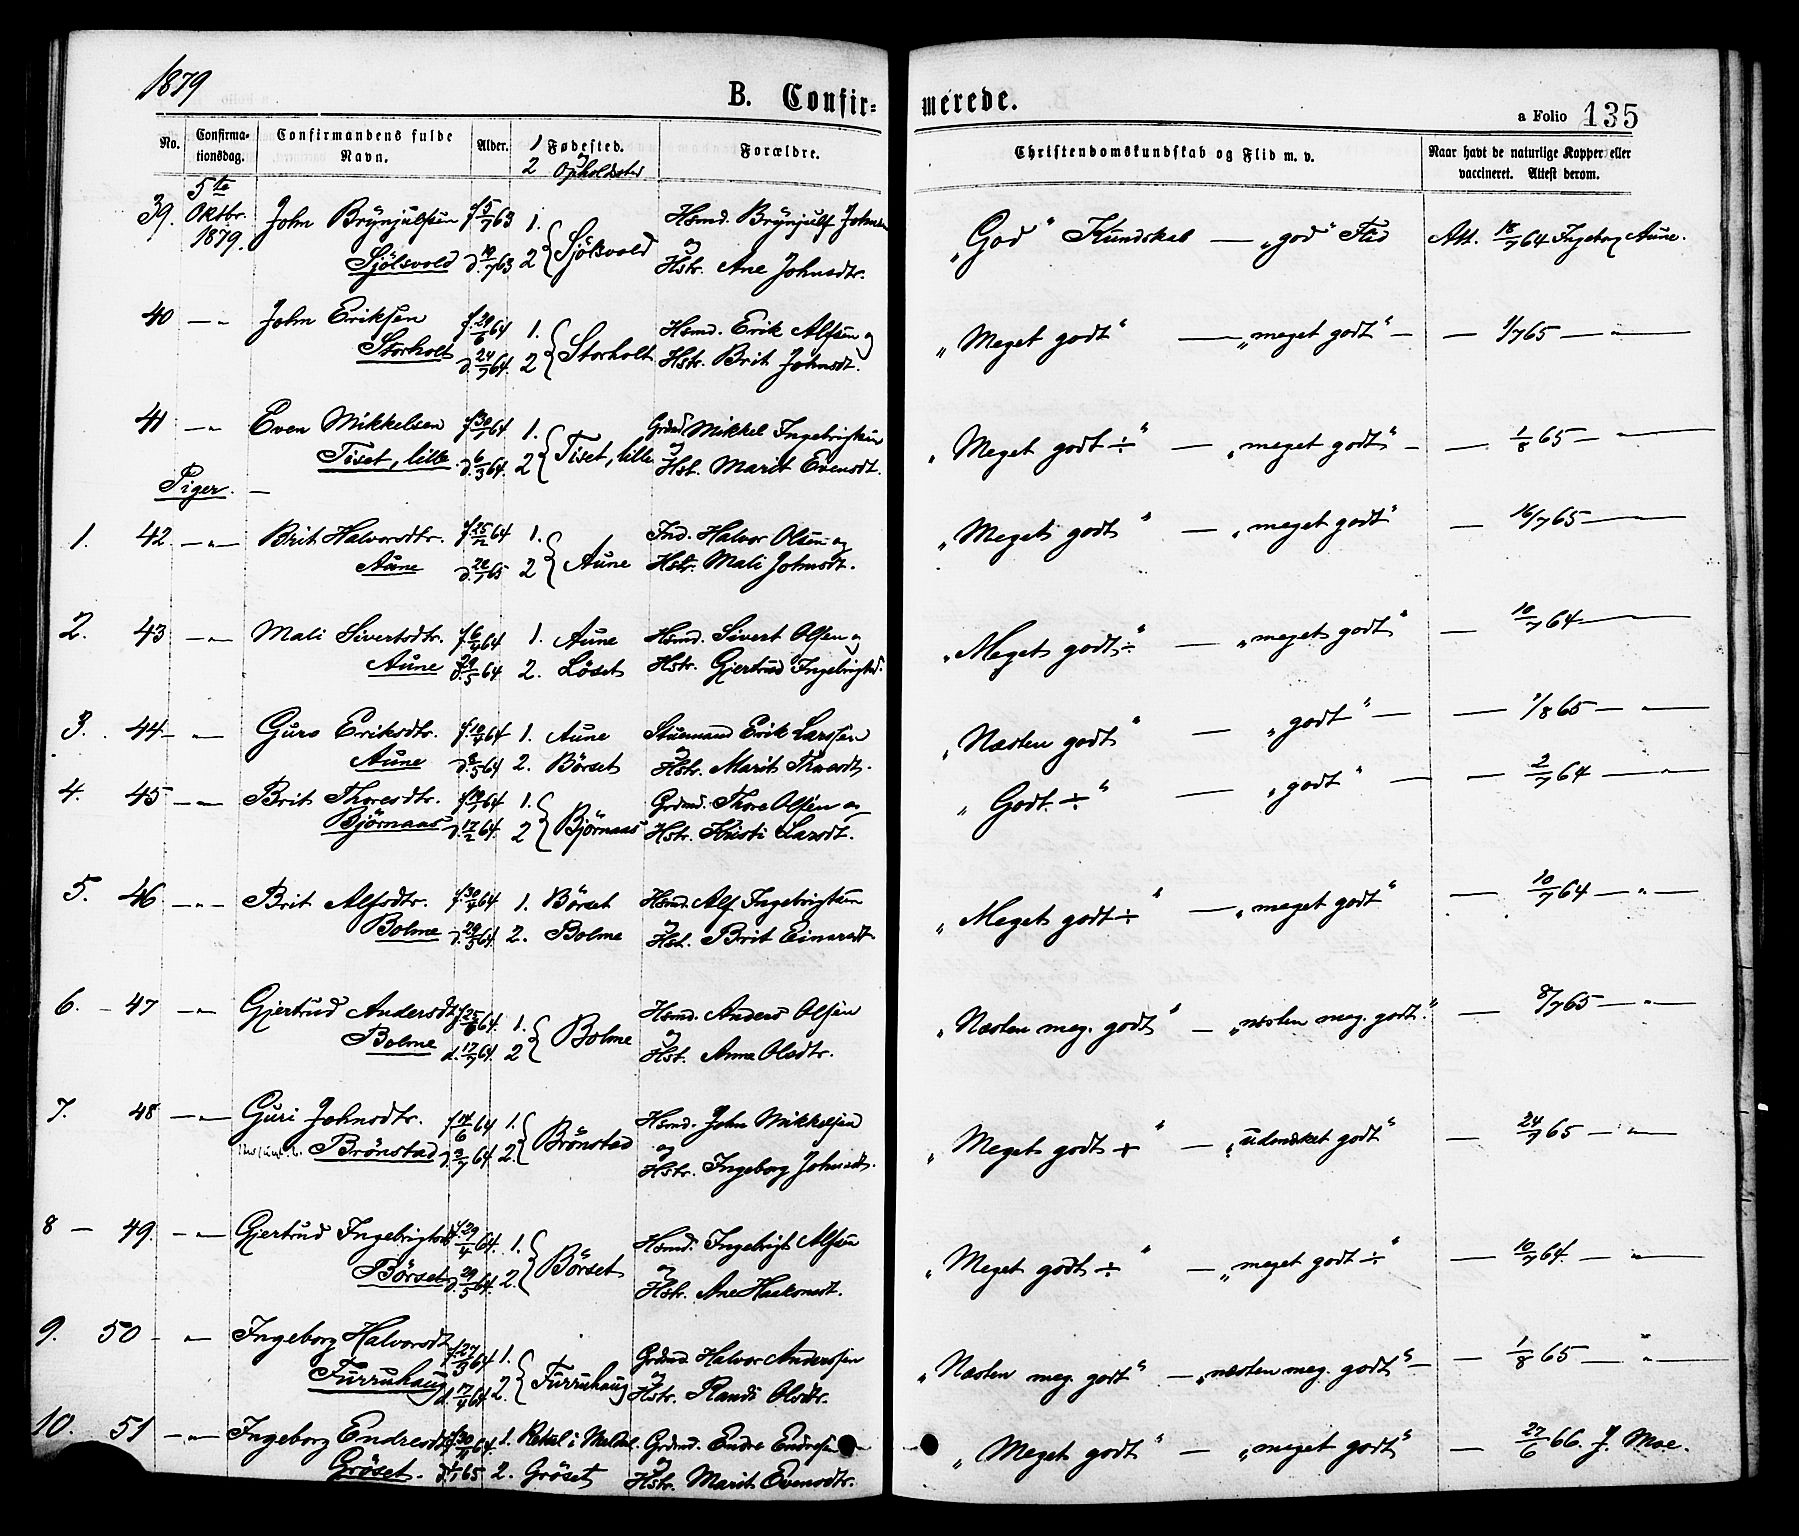 1879
B. Confirmerede.
a Folio 135
No. Confirmationsdag. Confirmandens fulde Navn. Alder. 1 Fødested. 2 Opholdsted Forældre. Christendomskundskab og Flid m. v. Naar havt de naturlige Kopper eller vaccineret. Attest derom.
39. 5te Oktbr. 1879. John Brynjulfsen f. 5/7 63 1. Hsmd. Brynjulf Johnsen „God“ Kundskab — „god“ Flid Att. 18/7 64 Ingebog Aune.
Sjölsvold d. 19/7 63 2 { Sjölsvold og Hstr. Ane Johnsdtr.
40 — „ John Eriksen f. 29/6 64 1. Hsmd. Erik Alfsen og „Meget godt“ — „meget godt“ — — 1/7 65 — „ —
Storholt d. 24/7 64. 2 { Storholt Hstr. Brit Johnsdt.
41 — „ Even Mikkelsen f. 30/1 64 1. Grdmd. Mikkel Ingebrigtsen „Meget godt ÷“ — „meget godt“ — — 1/8 65 — „ —
Tiset, lille d. 6/3 64. 2 { Tiset, lille og Hst. Marit Evensdt.
Piger. —
1. 42. — „ — Brit Halvorsdtr. f. 25/12 64 1. Ind. Halvor Olsen og „Meget godt“ — „meget godt“ — 16/7 65 — „ —
Aune d. 22/1 65 2 { Aune Hstr. Mali Johnsdt.
2. 43 — „ — Mali Sivertsdtr. f. 6/4 64 1. Aune Hsmd. Sivert Olsen og „Meget godt ÷“ — „meget godt“ — 10/7 64 — „ —
Aune d. 29/5 64 2. Löset Hstr. Gjertrud Ingebrigtsd.
3. 44 — „ Guro Eriksdtr. f. 10/4 64 1. Aune Erik Larssen „Næsten godt“ — „godt“ — — 1/8 65 — „ —
Aune d. 8/5 64 2. Börset og Hstr. Marit
4. 45 — „ — Brit Thoresdtr. f. 19/1 64 1. Grdmd. Thore Olsen og „Godt. ÷“ — „godt“ — — 2/7 64 — „ —
Björnaas d. 17/2 64. 2 { Björnaas Hstr. Kristi Larsdt.
5. 46 — „ — Brit Alfsdtr. f. 30/4 64 1. Börset Hsmd. Alf Ingebrigtsen „Meget godt ÷“ — „meget godt“ — 10/7 64 — „ —
Bolme d. 29/5 64. 2. Bolme og Hst. Brit Einarsdt.
6. - 47 — „ Gjertrud Andersdt. f. 25/6 64. 1. Hsmd. Anders Olsen „Næsten meg. godt“ — „næsten meg. godt.“ — 8/7 65 — „ —
Bolme d. 17/7 64. 2 { Bolme og Hst. Anne Olsdtr.
7. 48 — „ Guri Johnsdtr. f. 14/6 64 1. Hsmd. John Mikkelsen „Meget godt ÷“ — „udmærket godt“ — 24/7 65 — „ —
Brönstad d. 3/7 64 2. { Brönstad og Hstr. Ingeborg Johnsdt.
8 — 49. — „ — Gjertrud Ingebrigtsdt. f. 29/4 64. 1. Hsmd. Ingebrigt Alfsen „Meget godt ÷“ — „meget godt ÷“ — 10/7 64. — „ —
Börset d. 29/5 64. 2. { Börset og Hst. Ane Haakonsdt.
9. 50 — „ — Ingeborg Halvorsdt. f. 27/3 64 1. Grdmd. Halvor Anderssen „Næsten meg. godt“ — „næsten meg. godt“ — — 1/8 65 — „ —
Furruhaug d. 17/4 64 2. { Furruhaug og Hstr. Randi Olsdtr.
10. 51 — „ — Ingeborg Endresdt. f. 30/9 64. 1. i Meldal. Grdmd. Endre Endresen „Meget godt“ — „meget godt“ — 27/6 66. J. Moe.
Gröset. d. 1/1 65 2. Gröset og Hstr. Marit Evensdtr.